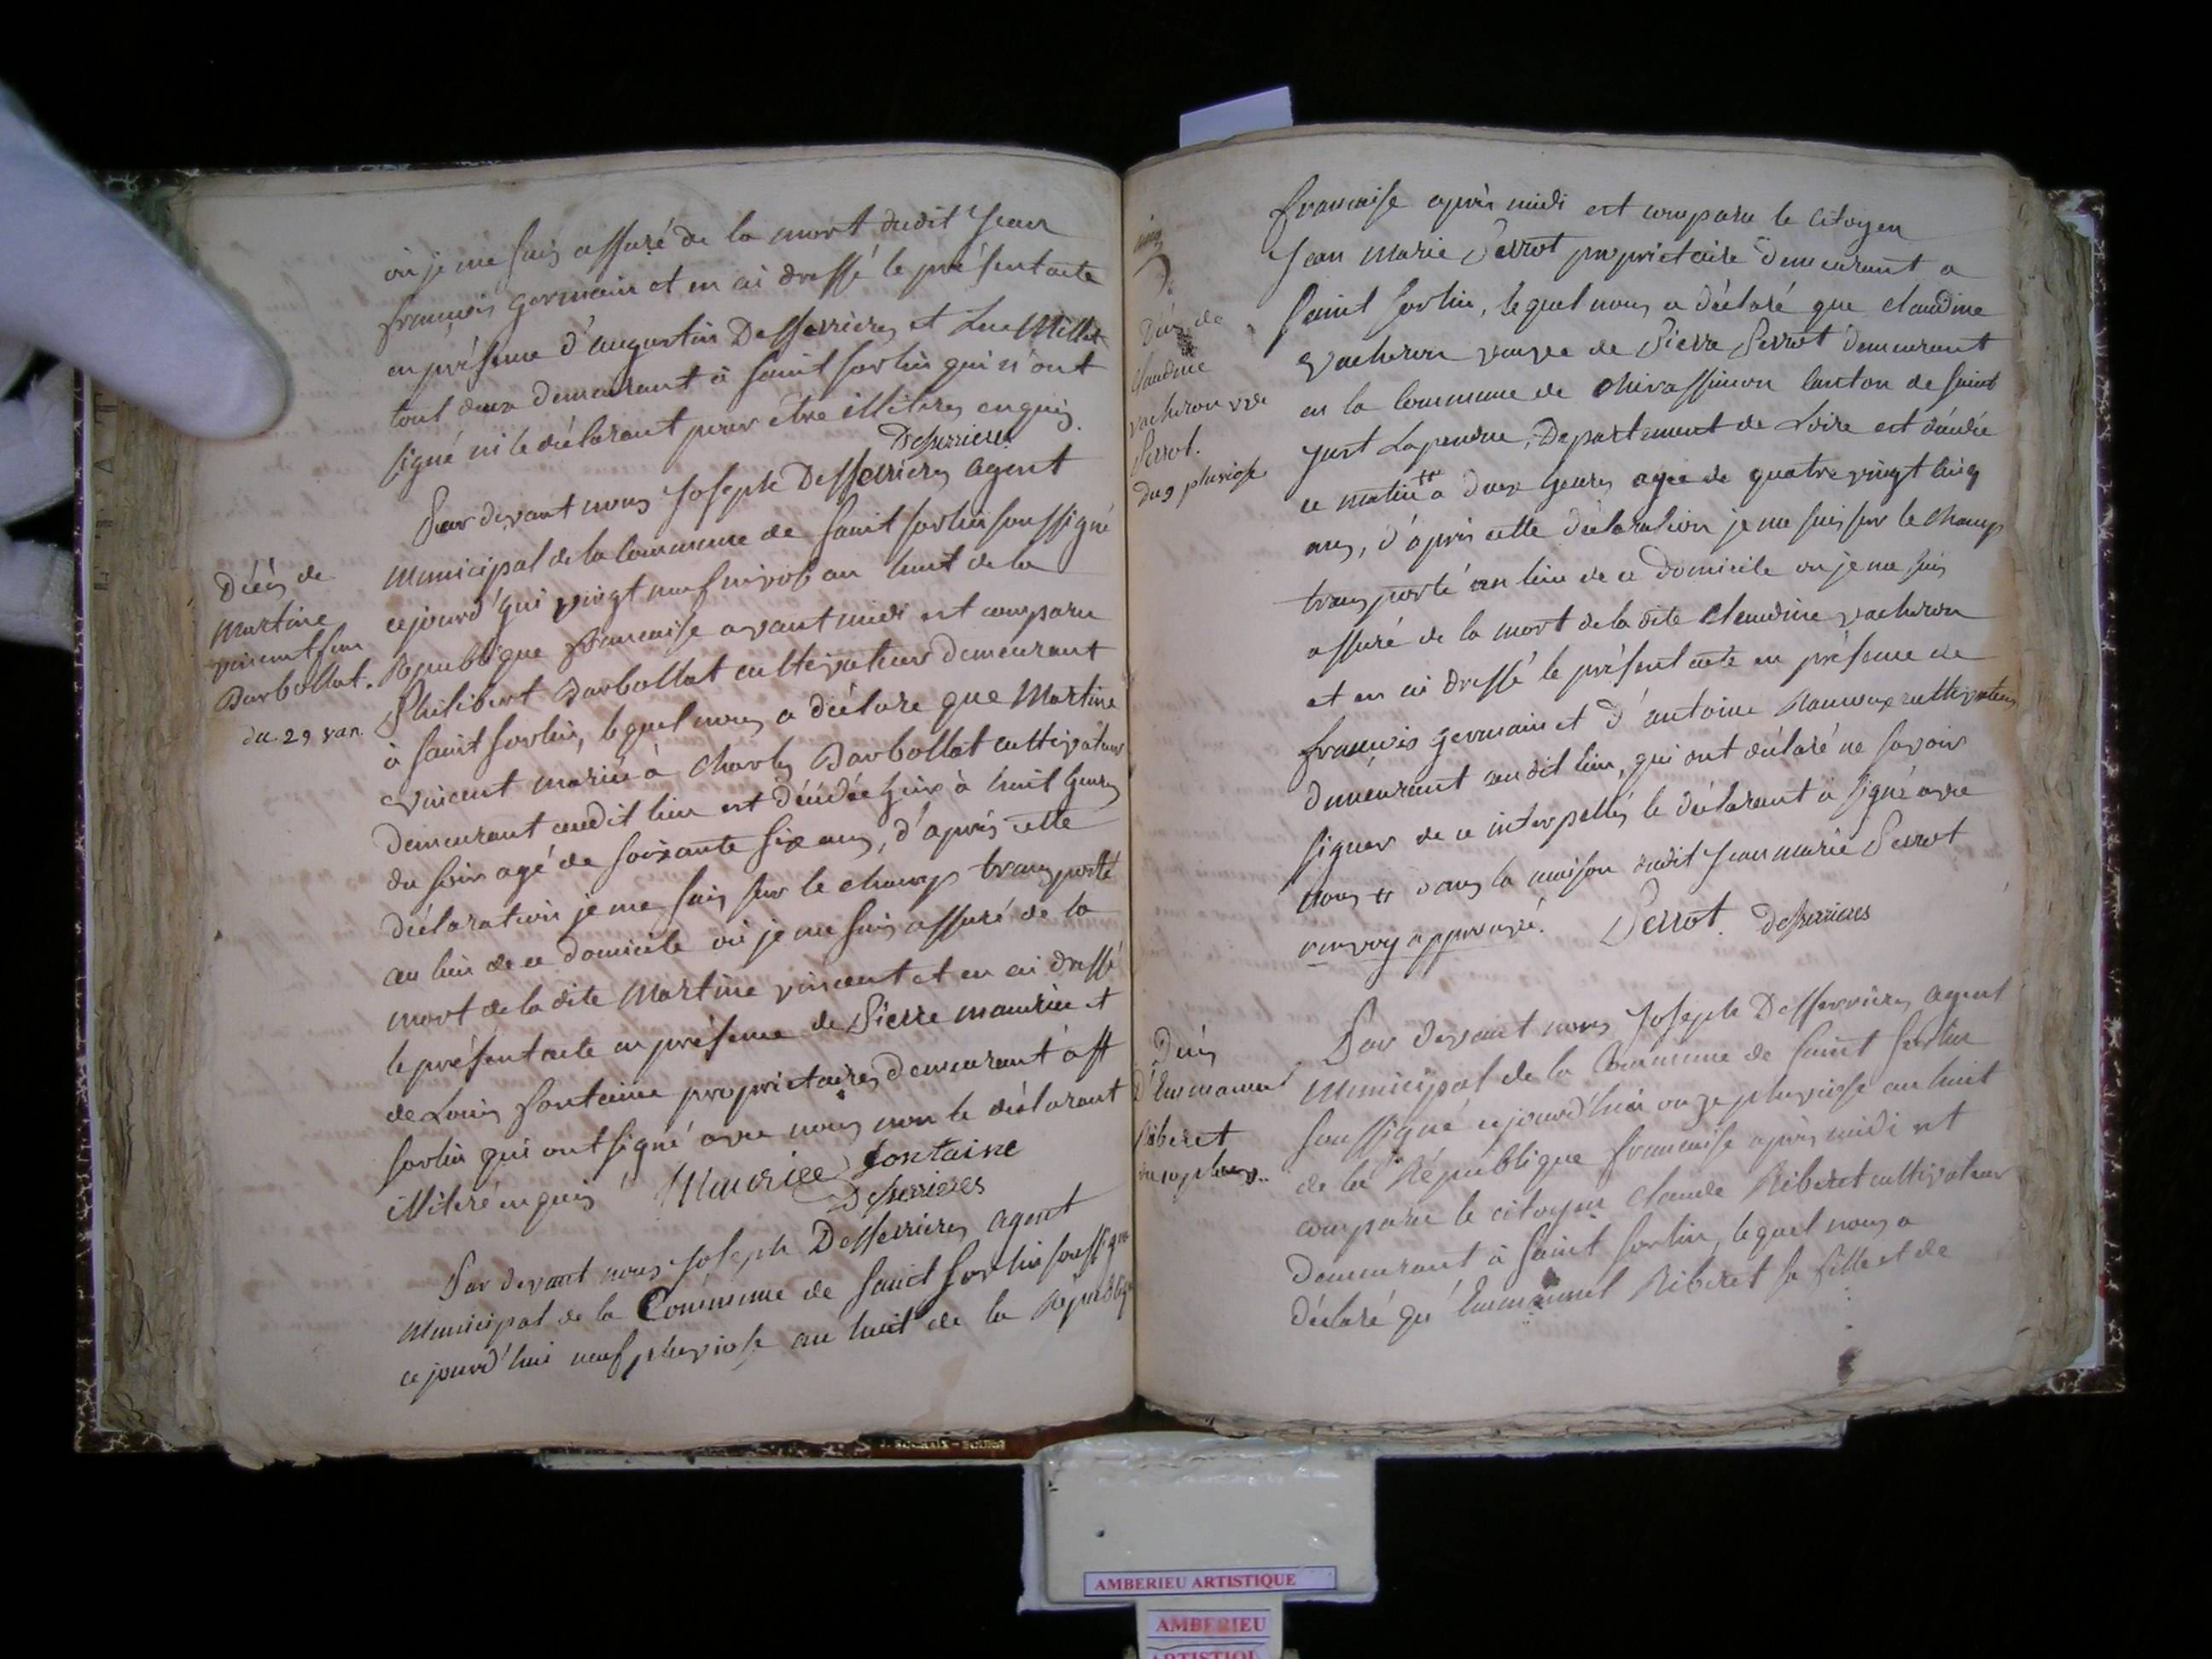 où je me suis assuré de la mort dudit Jean
françois germain et en ai dressé le présent acte
en présence d'augustin Desserrieres et Luc Millet
tout deux demeurant à saint sorlin qui n'ont
signé ni le déclarant pour être illitérés enquis.
Desserrieres
Par devant nous Joseph Desserrieres agent
Municipal de la Commune de saint sorlin soussigné
cejourd'hui vingt neuf nivose an huit de la
République francaise avant midi est comparu
Philibert Barbollat cultivateur demeurant
à saint sorlin, lequel nous a déclaré que Martine
vincent mariée à Charles Barbollat cultivateur
demeurant audit lieu est décédée hier à huit heures
du soir agé de soixante six ans, d'après cette
déclaration je me suis sur le champ transporté
au lieu de ce domicile où je me suis assuré de la
mort de la dite Martine vincent et en ai dressé
le présent acte en présence de Pierre maurice et
de Louis fontaine proprietaires demeurant à st
sorlin qui ont signé avec nous non le déclarant
illiteré enquis Maurice fontaine
Desserrieres
Par devant nous Joseph Desserrieres agent
Municipal de la Commune de saint sorlin soussigné
ce jourd'hui neuf pluviose an huit de la Républiq
Décés de
Martine
vincent
Barbollat.
du 29
francaise après midi est comparu le citoyen
Jean Marie Perrot proprietaire demeurant a
saint sorlin, lequel nous a déclaré que claudine
vacheron veuve de Pierre Perrot demeurant
en la Commune de Chirassimon Canton de saint
Just Lapendue, Departement de Loire est décédée
ce matin a deux heures agée de quatre vingt cinq
ans, d'après cette déclaration je me suis sur le champ
transporté au lieu de ce domicile ou je me suis
assuré de la mort de la dite Claudine vacheron
et en ai dressé le présent acte en présence de
françois germain et d'antoine cultivateurs
demeurant audit lieu, qui ont déclaré ne savoir
signer de ce interpellés le déclarant a signé avec
nous # dans la maison dudit Jean marie Perrot
renvoy approuvé. Perrot. Desserrieres
Par devant nous Joseph Desserrieres agent
Municipal de la Commune de saint sorlin
soussigné cejourd'hui onze pluviose an huit
de la République francaise après midi est
comparu le citoyen Claude Riberet cultivateur
demeurant à saint sorlin, lequel nous a
déclaré qu'Emmanuel Riberet sa fille et de
Décés de
claudine
vacheron vve
Perrot.
du 9 pluviose
Décés
d'Emmanuel
Riberet
AMBERIEU ARTISTIQUE
AMBERIEU
ARTISTIQUE